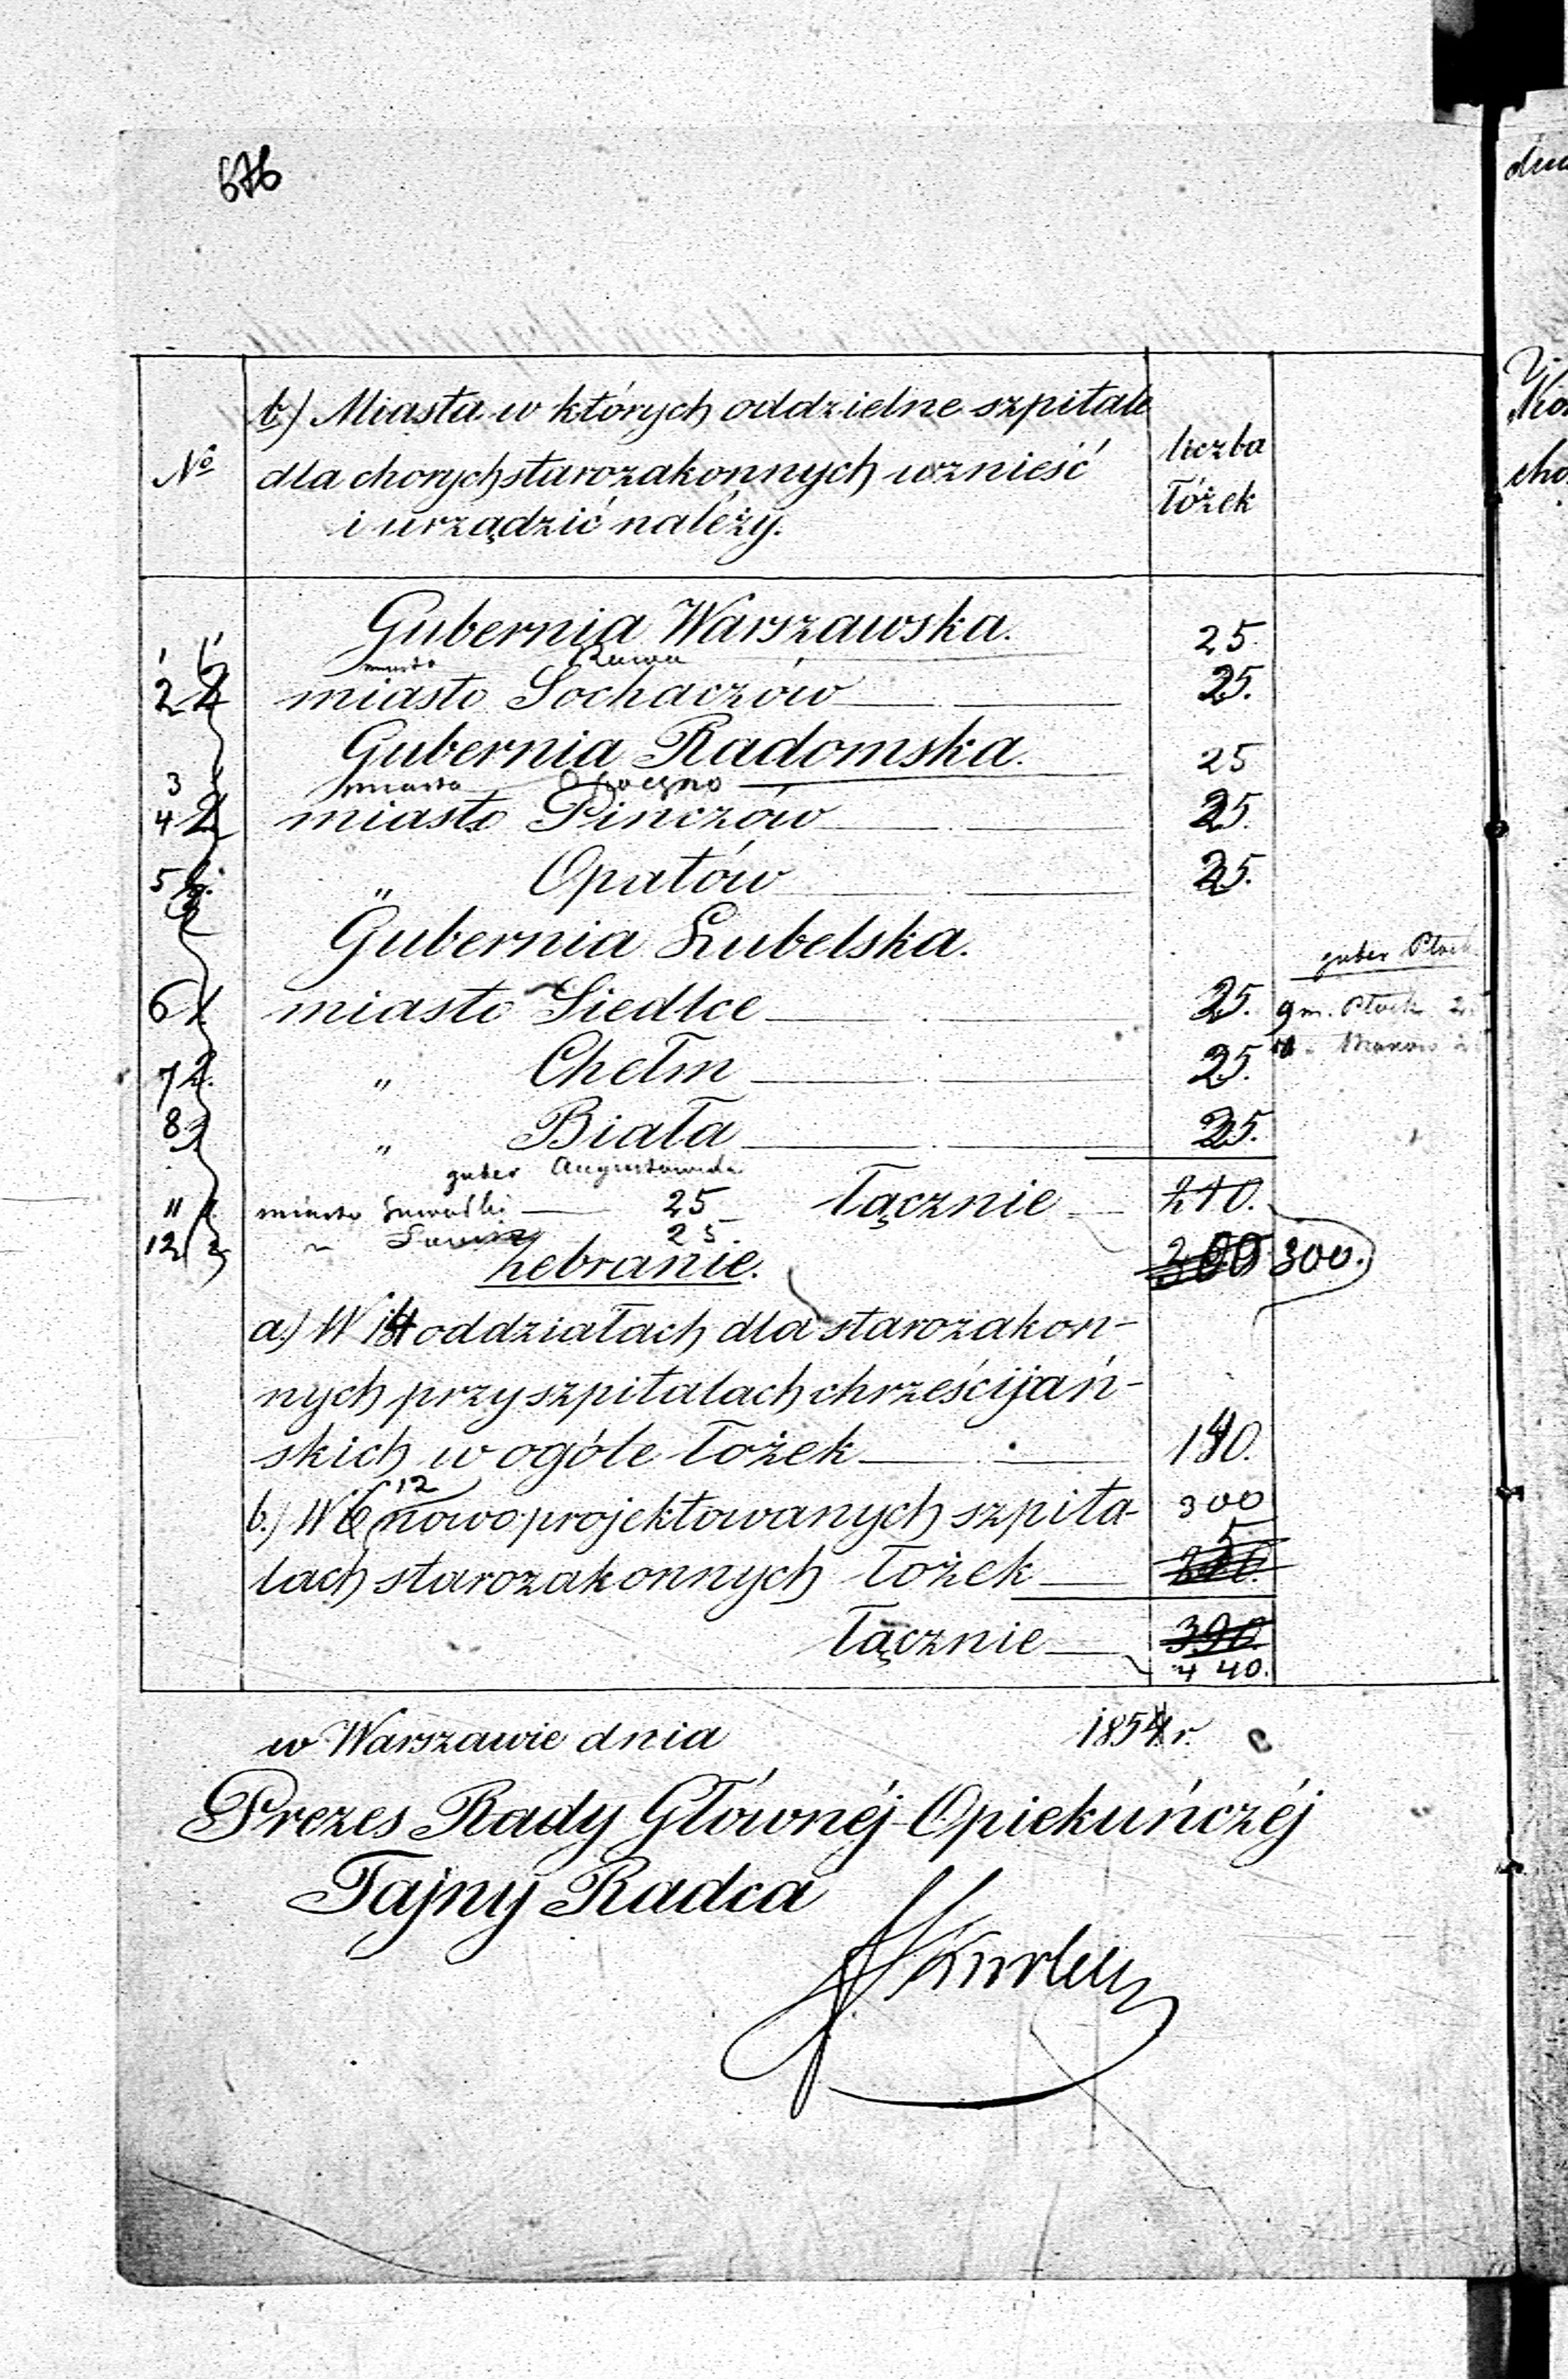 676
b) Miasta w których oddzielne szpitale
dla chorych starozakonnych wznieść
i urządzić należy.
No
liczba
łóżek
Gubernia Warszawska.
1 miasto Rawa 25.
2 miasto Sochaczów 25.
Gubernia Radomska.
3 miasto Opoczno 25
4 miasto Pinczów 25.
5 „ Opatów 25.
Gubernia Lubelska.
guber Płock
6 miasto Siedlce 25. 9 m. Płock
7 „ Chełm 25.
8 „ Biała 25.
guber Augustowska
11 miasto Suwałki 25 Łącznie 210.
12 25.
300.
Zebranie.
a.) W 14 oddziałach dla starozakon-
nych przy szpitalach chrześcijań-
skich w ogóle łożek 140.
12
b.) W nowo projektowanych szpita- 300
lach starozakonnych łożek
Łącznie 390.
440.
w Warszawie dnia 1854 r.
Prezes Rady Głównéj Opiekuńczéj
Tajny Radca